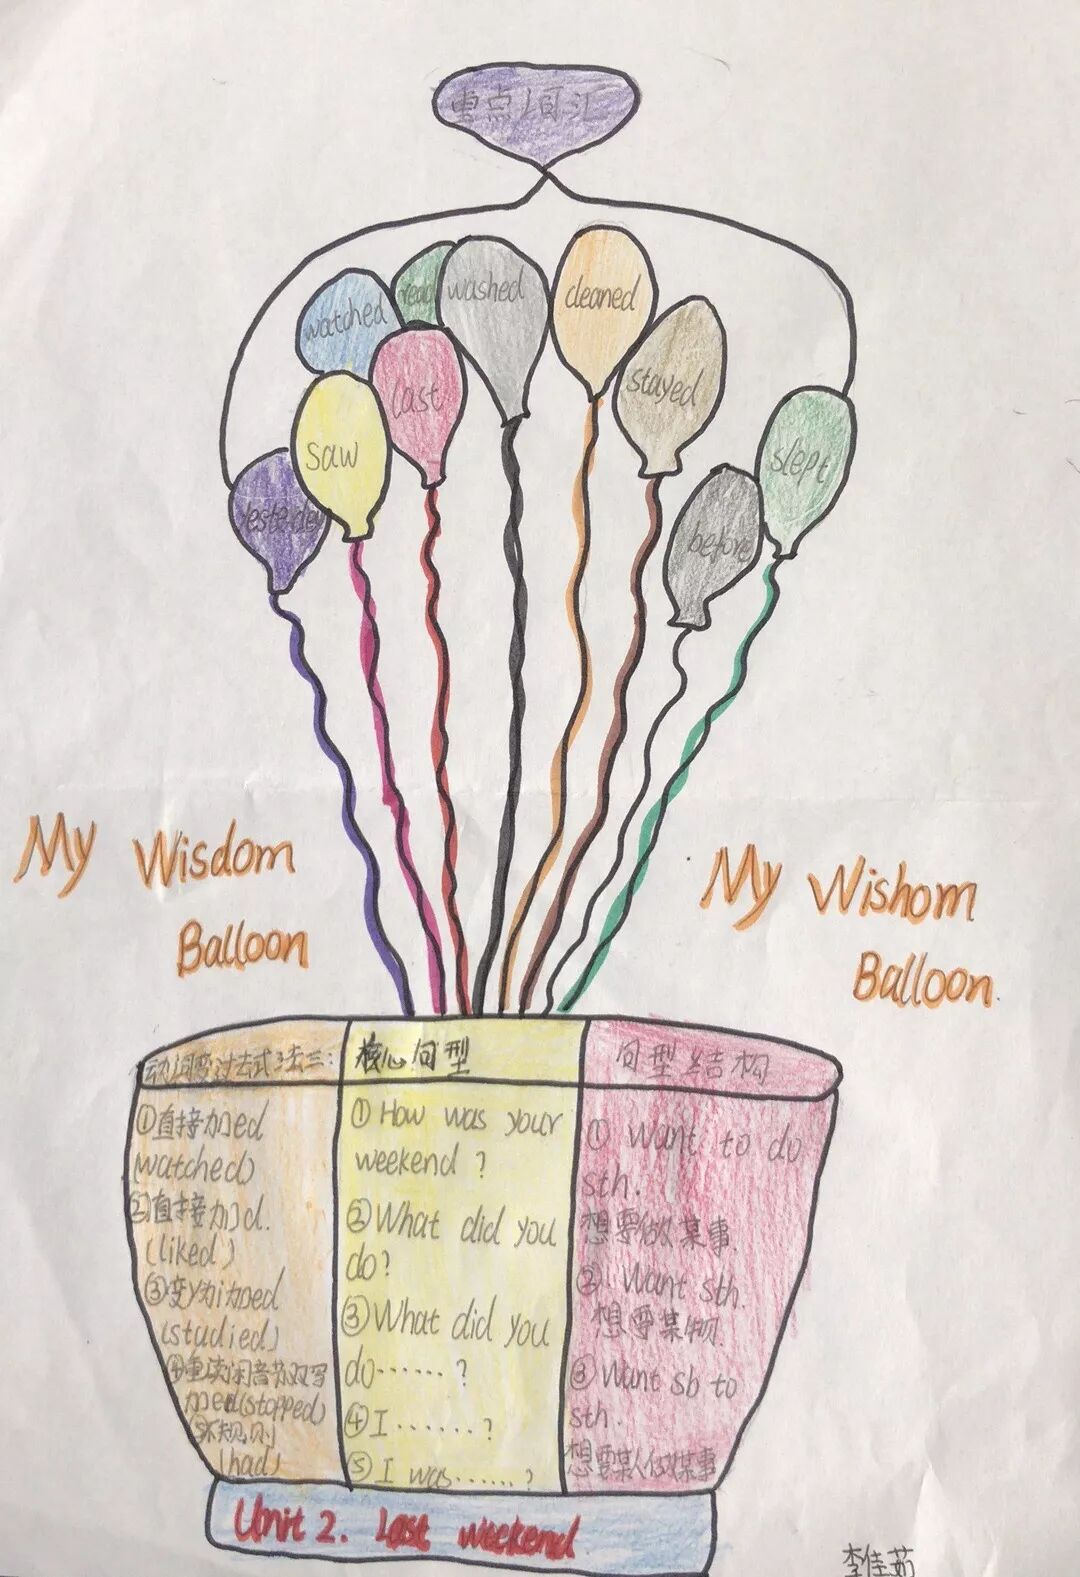 重点词汇
watched
read
washed
cleaned
stayed
last
saw
slept
before
My Wisdom
Balloon
My Wishom
Balloon.
动词变过去式法三:
①直接加ed
(watched)
②直接加d.
(liked)
③变y为i加ed
(studied)
④重读闭音节双写
加ed(stopped)
⑤不规则
(had)
核心句型
①How was your
weekend ?
②What did you
do?
③What did you
do……?
④I……?
⑤I was……?
句型结构
① Want to do
sth.
想要做某事.
② Want sth.
想要某物.
③ Want sb to
sth.
想要某人做某事
Unit 2. Last weekend
李佳茹